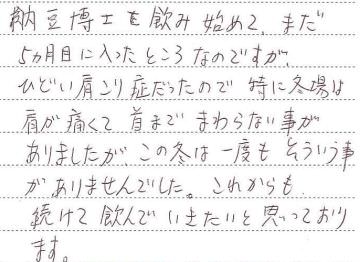 納豆博士を飲み始めて、まだ
5ヵ月目に入ったところなのですが、
ひどい肩こり症だったので特に冬場は
肩が痛くて首までまわらない事が
ありましたがこの冬は一度もそういう事
がありませんでした。これからも
続けて飲んでいきたいと思っており
ます。